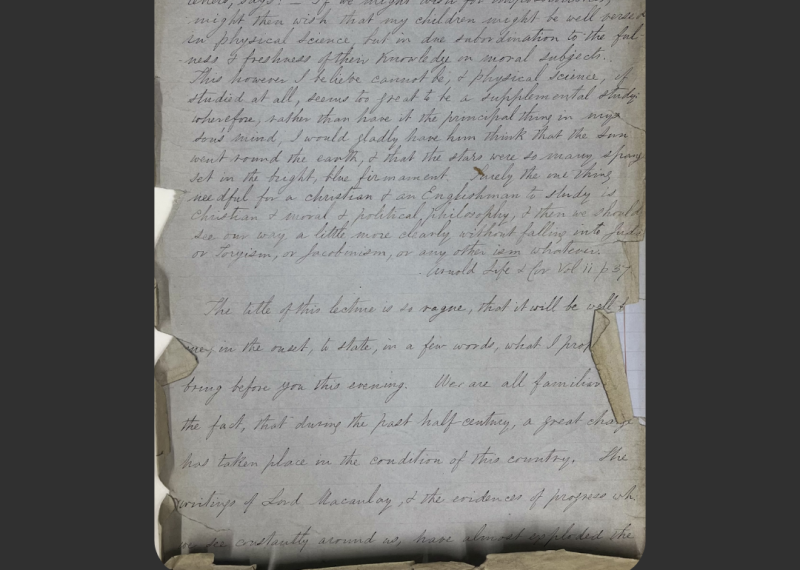 might then wish that my children might be well versed
in physical science, but in due subordination to the ful-
ness & freshness of their knowledge on moral subjects.
This however I believe cannot be, & physical science, if
studied at all, seems too great to be a supplemental study:
wherefore, rather than have it the principal thing in my
son's mind, I would gladly have him think that the Sun
went round the earth, & that the stars were so many spang
set in the bright, blue firmament. Surely the one thing
needful for a christian & an Englishman to study is
Christian & moral & political philosophy, & then we should
see our way a little more clearly without falling into Juda
or Toryism, or Jacobinism, or any other ism whatever.
Arnold Life & Cor Vol II. p 37
The title of this lecture is so vague, that it will be well
in the onset, to state, in a few words, what I prop
bring before you this evening. We are all familiar
the fact, that during the past half century, a great change
has taken place in the condition of this country. The
writings of Lord Macaulay, & the evidences of progress wh
see constantly around us, have almost exploded the